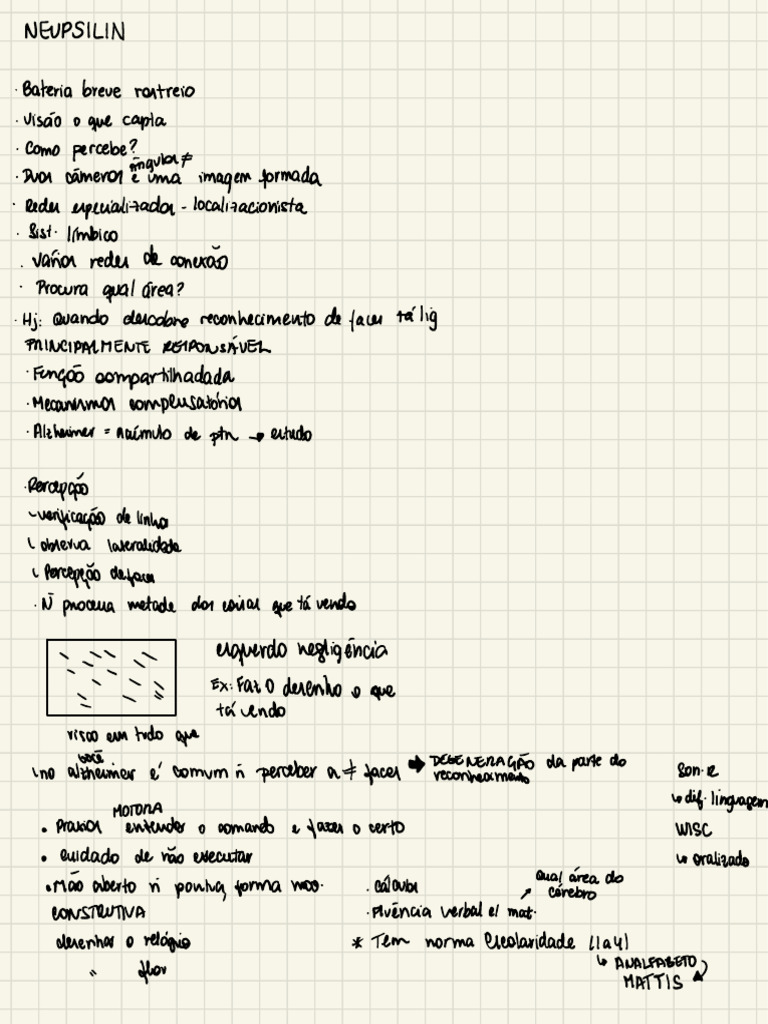 NEUPSILIN
· Bateria breve rastreio
· Visão o que capta
· Como percebe?
ângulos ≠
· Duas câmeras é uma imagem formada
· Redes especializadas - localizacionista
· Sist. límbico
· Várias redes de conexão
· Procura qual área?
· Hj: Quando descobre reconhecimento de faces tá lig
PRINCIPALMENTE RESPONSÁVEL
· Função compartilhadada
· Mecanismos compensatórios
· Alzheimer = acúmulo de ptn → estudo
· Percepção
verificação de linhas
observa lateralidade
Percepção de faces
· Ñ processa metade das coisas que tá vendo
esquerdo negligência
Ex: Faz o desenho o que
tá vendo
risco em tudo que
você
no alzheimer é comum ñ perceber a ≠ faces → DEGENERAÇÃO da parte do
reconhecimento
Son-R
↳ dif. linguagem
WISC
↳ oralizado
MOTORA
• Praxias entender o comando e fazer o certo
• cuidado de não executar
• Mão aberta ñ punho, forma
CONSTRUTIVA
desenhar o relógio
" flor
· cálculos
Qual área do
cérebro
· Fluência verbal e/ mat.
* Tem norma Escolaridade (1a4)
↳ ANALFABETO
MATTIS